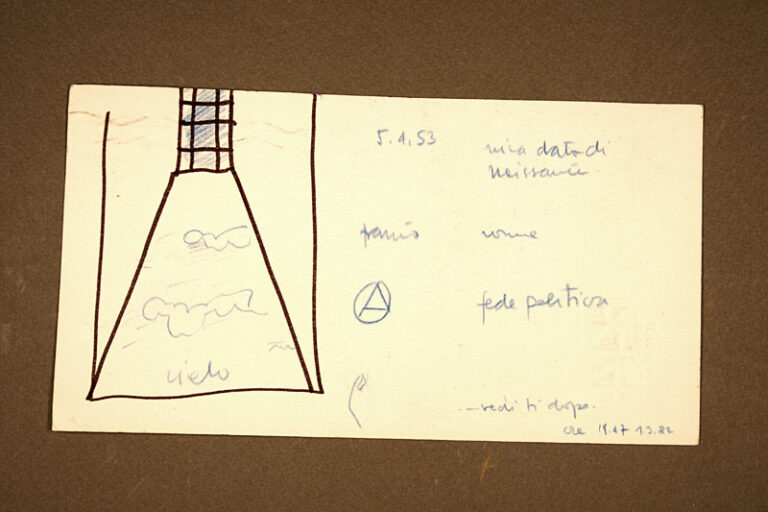 5.4.53
mia data di
naissance
nome
fede politica
cielo
vediti dopo.
ore 19.47 1.3.82